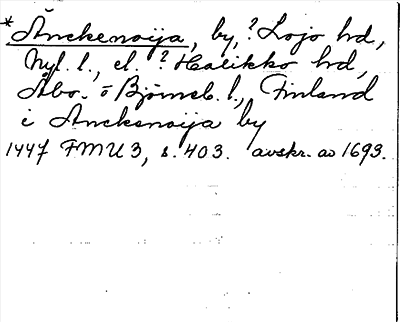 * Anckenoija, by, ? Lojo hd,
Nyl. l., el. ? Halikko hd,
Åbo- o Björneb. l., Finland
i Anckenoija by
1447 FMU 3, s. 403. avskr. av 1693.